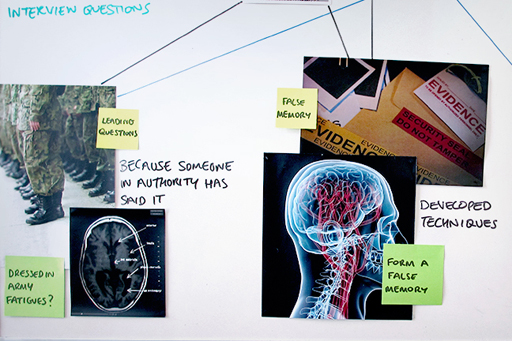 INTERVIEW QUESTIONS
LEADING
QUESTIONS
BECAUSE SOMEONE
IN AUTHORITY HAS
SAID IT
DRESSED IN
ARMY
FATIGUES?
FALSE
MEMORY
EVIDENCE
SECURITY SEAL
DO NOT TAMPER
EVIDENCE
EVIDENCE
DEVELOPED
TECHNIQUES
FORM A
FALSE
MEMORY